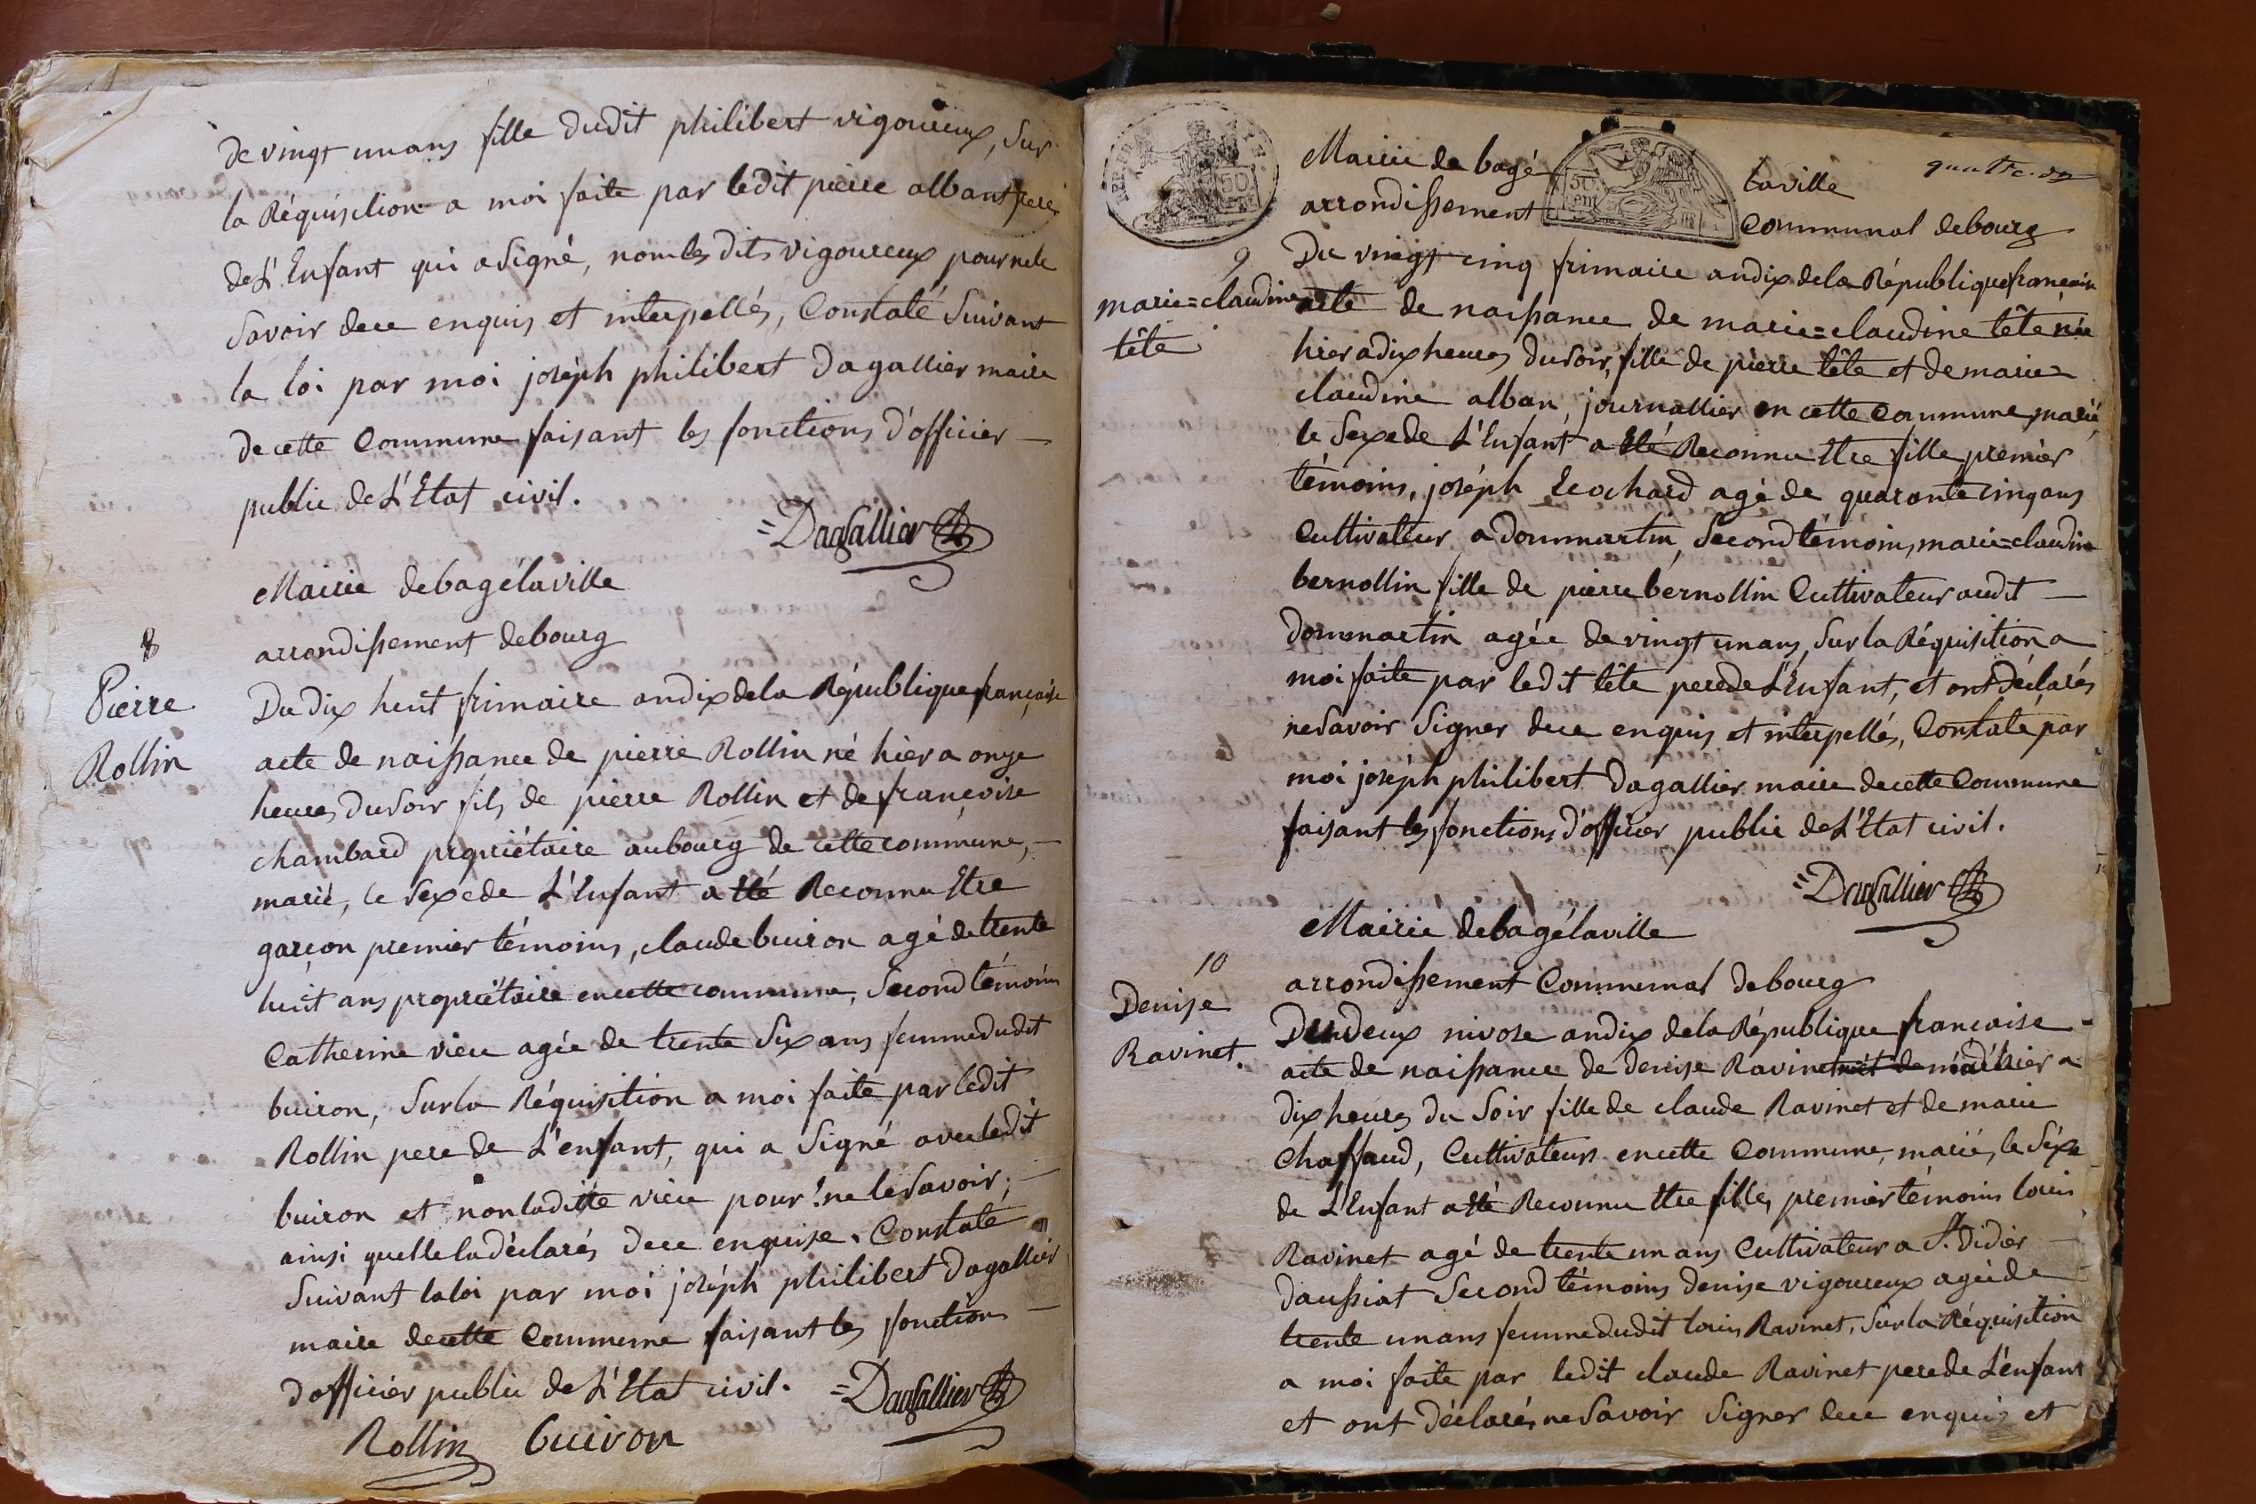 de vingt un ans fille dudit philibert vigoureux, Sur
la Réquisition a moi faite par ledit pierre alban pere
de L'Enfant qui a Signé, non les dits vigoureux pour ne le
Savoir de ce enquis et interpellés, Constaté Suivant
la loi par moi joséph philibert Dagallier maire
de cette Commune faisant les fonctions d'officier —
public de L'Etat civil.
=Dagallier
Mairie de bagé la ville
arrondissement de bourg
8
Pierre
Rollin
Du dix huit frimaire an dix de la République française
acte de naissance de pierre Rollin né hier a onze
heures du Soir fils de pierre Rollin et de françoise
chambard propriétaire au bourg de cette commune, —
marié, le Sexe de L'Enfant a été Reconnu Etre
garçon premier témoins, claude buiron agé de trente
huit ans propriétaire en cette commune, Second témoins
Catherine vieu agée de trente Six ans femme dudit
buiron, Sur la Réquisition a moi faite par ledit
Rollin pere de L'enfant, qui a Signé avec ledit
buiron et non la ditte vieu pour ne le Savoir; —
ainsi quelle la déclarés de ce enquise. Constaté
Suivant la loi par moi joséph philibert Dagallier
maire de cette Commune faisant les fonctions —
d'officier public de L'Etat civil. =Dagallier
Rollin buiron
quatre. D
Mairie de bagé la ville
arrondissement Communal de bourg
9
marie=claudine
tête
Du vingt cinq frimaire an dix de la République francaise
acte de naissance de marie=claudine tête née
hier a dix heures du Soir, fille de pierre tête et de marie=
claudine alban, journallier en cette Commune, marié,
le Sexe de L'Enfant a été Reconnu Etre fille, premier
témoins, joséph Ecochard agé de quarante cinq ans
Cultivateur a dommartin, Second témoins, marie=claudine
bernollin fille de pierre bernollin Cultivateur audit —
dommartin agée de vingt un ans, Sur la Réquisition a
moi faite par ledit tête pere de L'Enfant, et ont déclarés
ne Savoir Signer de ce enquis et interpellés, Constaté par
moi joséph philibert Dagallier maire de cette Commune
faisant les fonctions d'officier public de L'Etat civil.
=Dagallier
Mairie de bagé la ville
arrondissement Communal de bourg
10
Denise
Ravinet.
Du deux nivose an dix de la République francaise
acte de naissance de denise Ravinet née hier a
dix heures du Soir fille de claude Ravinet et de marie
Chaffaud, Cultivateurs en cette Commune, mariés, le Séxe
de L'Enfant a été Reconnu Etre fille, premier témoins louis
Ravinet agé de trente un ans Cultivateur a St. Didier —
daussiat Second témoins denise vigoureux agée de
trente un ans femme dudit louis Ravinet, Sur la Réquisition
a moi faite par ledit claude Ravinet pere de L'enfant
et ont déclarés ne Savoir Signer de ce enquis et